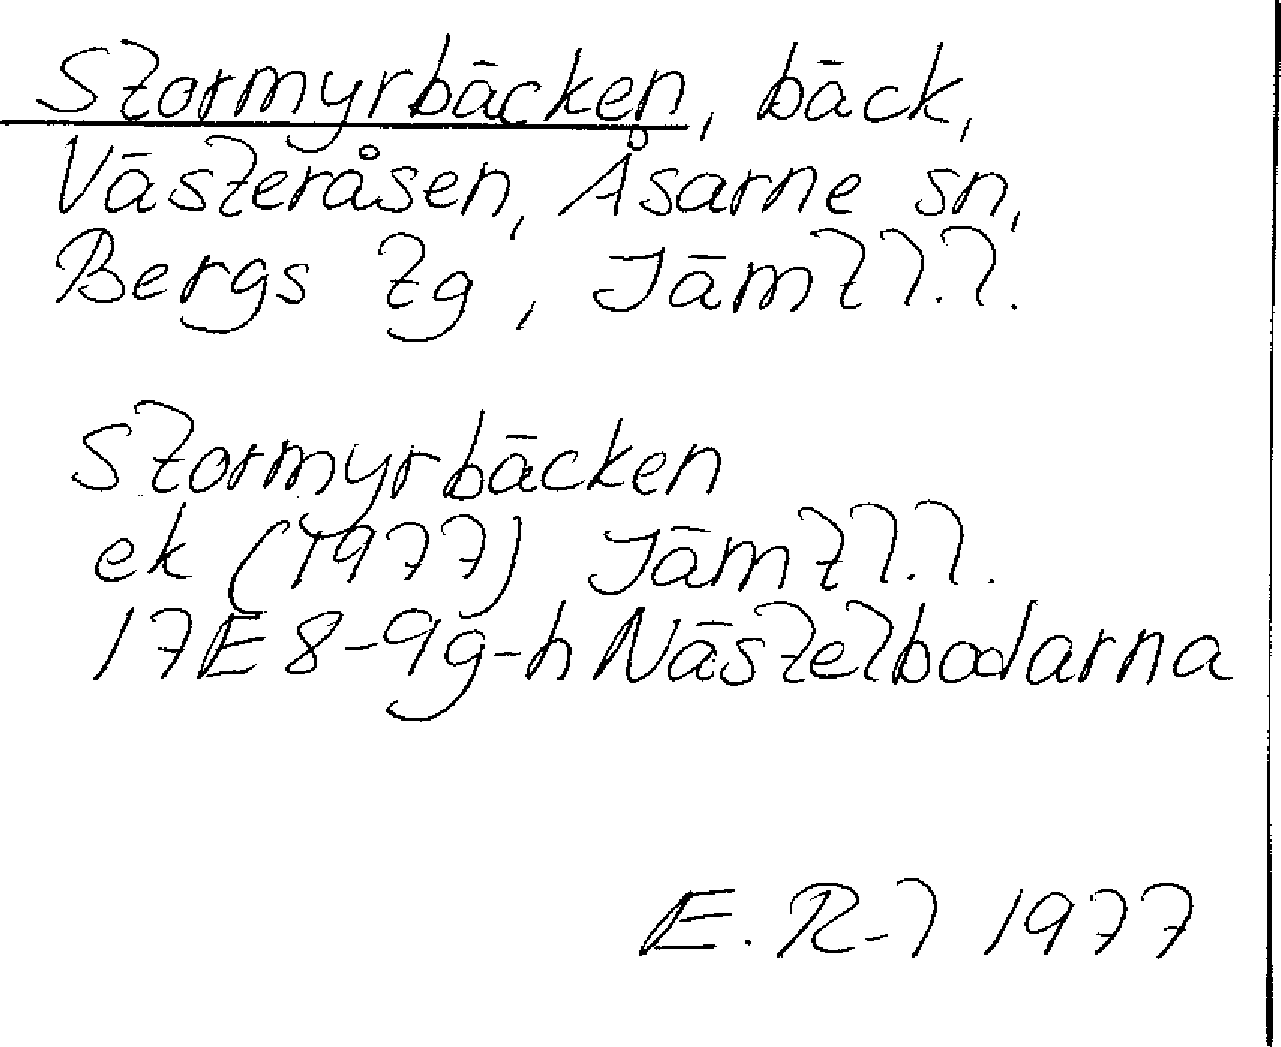 Stormyrbäcken, bäck,
Västeråsen, Åsarne sn,
Bergs tg, Jämtl.l.
Stormyrbäcken
ek (1977) Jämtl.l.
17E 8-9g-h Nästelbodarna
E. R-l 1977